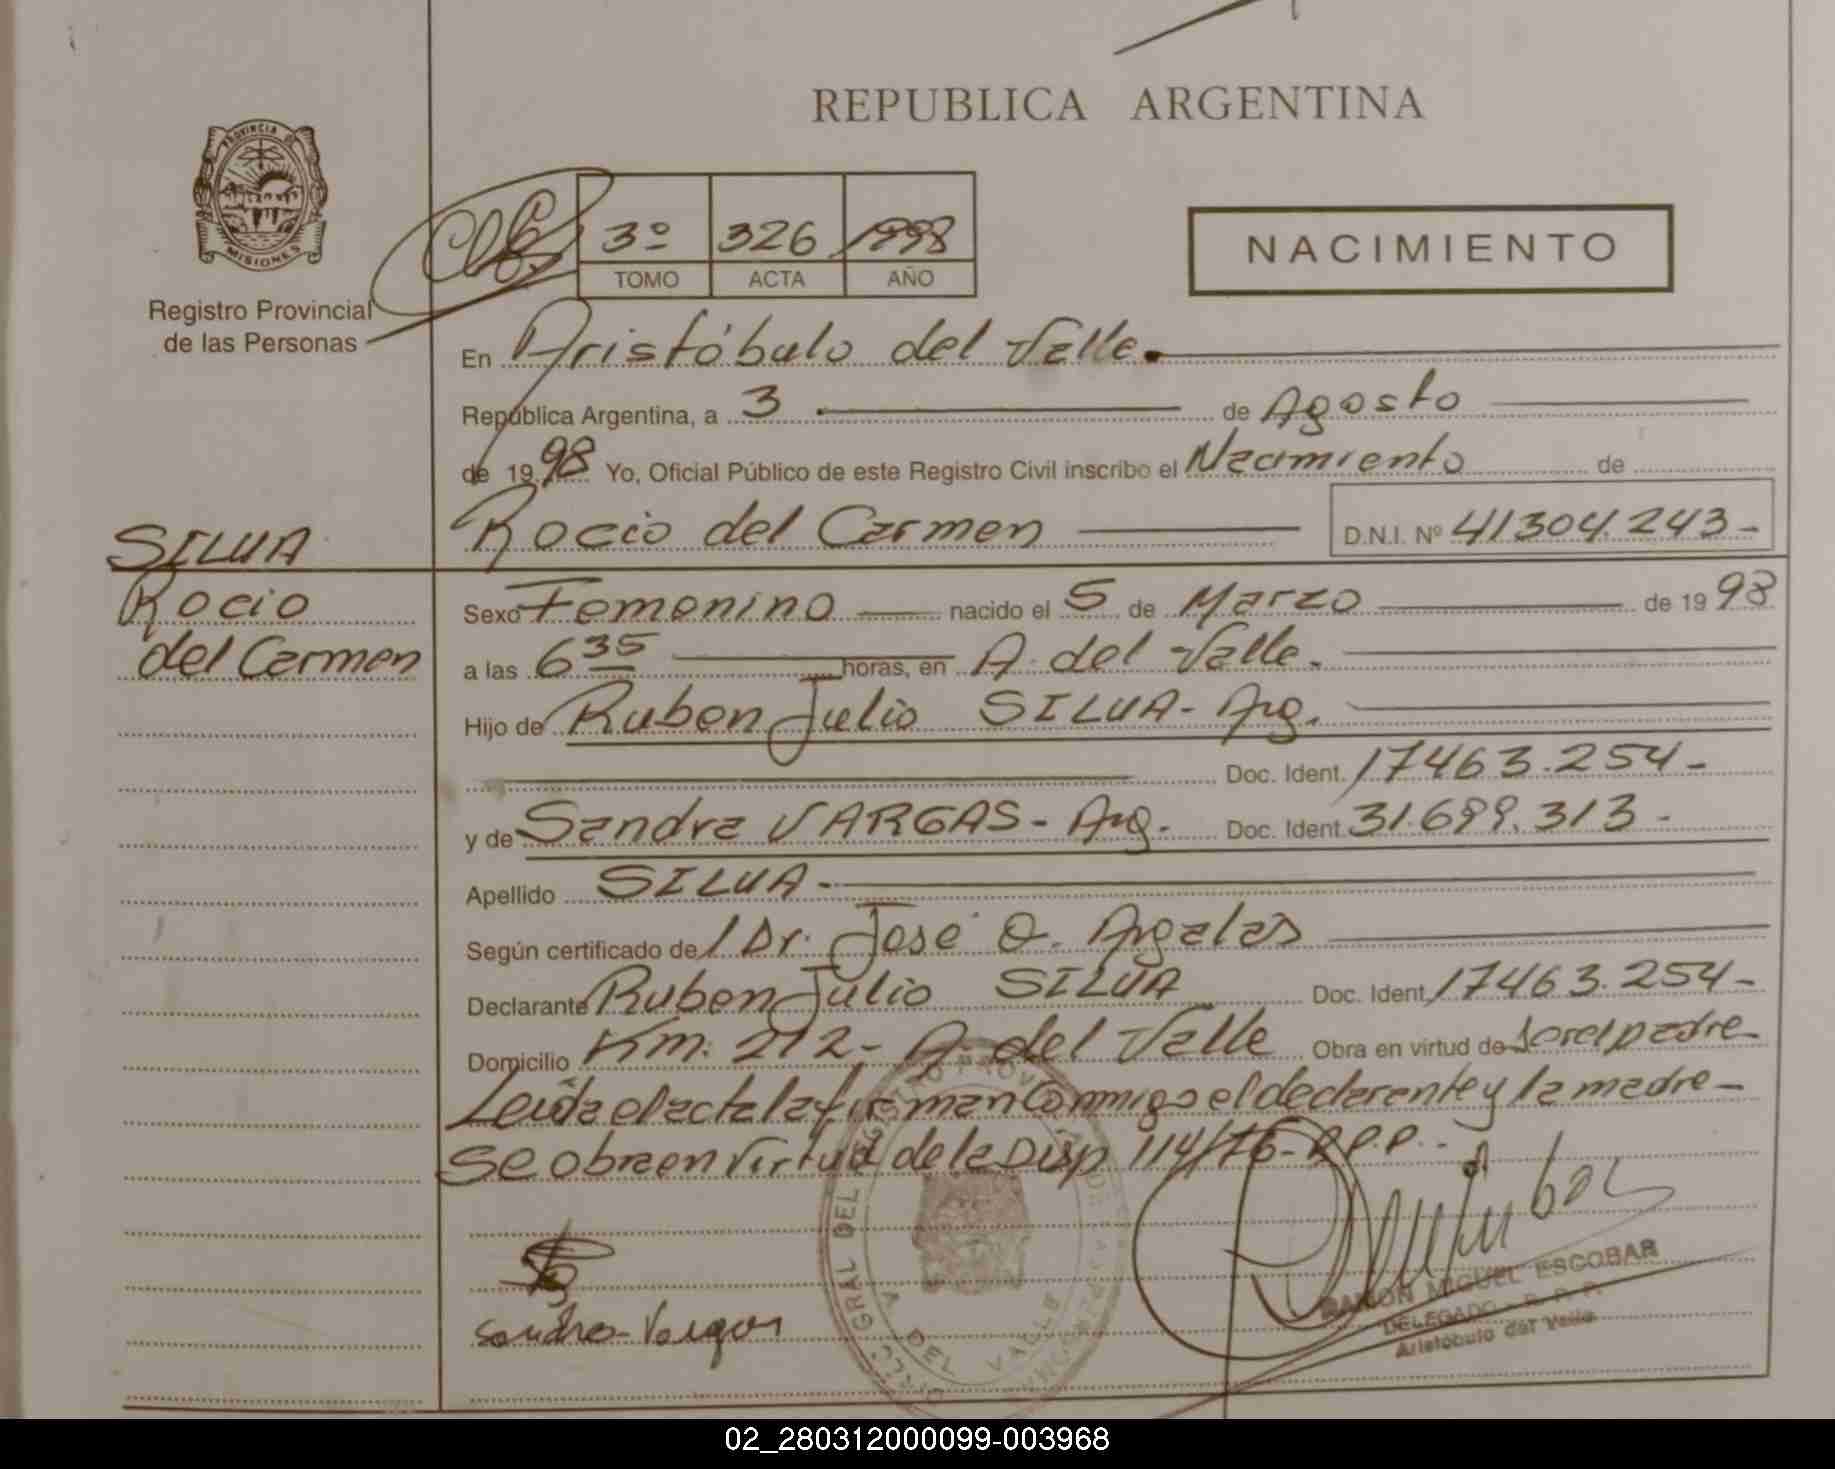 REPUBLICA ARGENTINA
PROVINCIA DE
MISIONES
Registro Provincial
de las Personas
3º 326 1998
TOMO ACTA AÑO
NACIMIENTO
En Aristóbulo del Valle.
República Argentina, a 3 de Agosto
de 1998 Yo, Oficial Público de este Registro Civil inscribo el Nacimiento de
Rocio del Carmen D.N.I. Nº 41304.243-
SILVA
Rocio
del Carmen
Sexo Femenino nacido el 5 de Marzo de 1998
a las 6 35 horas, en A. del Valle.
Hijo de Ruben Julio SILVA- Arg.
Doc. Ident. 17463.254-
y de Sandra VARGAS- Arg. Doc. Ident. 31.699.313-
Apellido SILVA-
Según certificado de / Dr. José O. Argalas
Declarante Ruben Julio SILVA Doc. Ident. 17463.254-
Domicilio Km: 272- A. del Valle Obra en virtud de ser el padre
Leída el acta la firman conmigo el declarante y la madre-
Se obra en virtud de la Disp 114/76- R.P.P.-
Sandra Vargas
RAMON MIGUEL ESCOBAR
DELEGADO - R. P. P.
Aristóbulo del Valle
GRAL DEL
A DEL VALLE
02_280312000099-003968